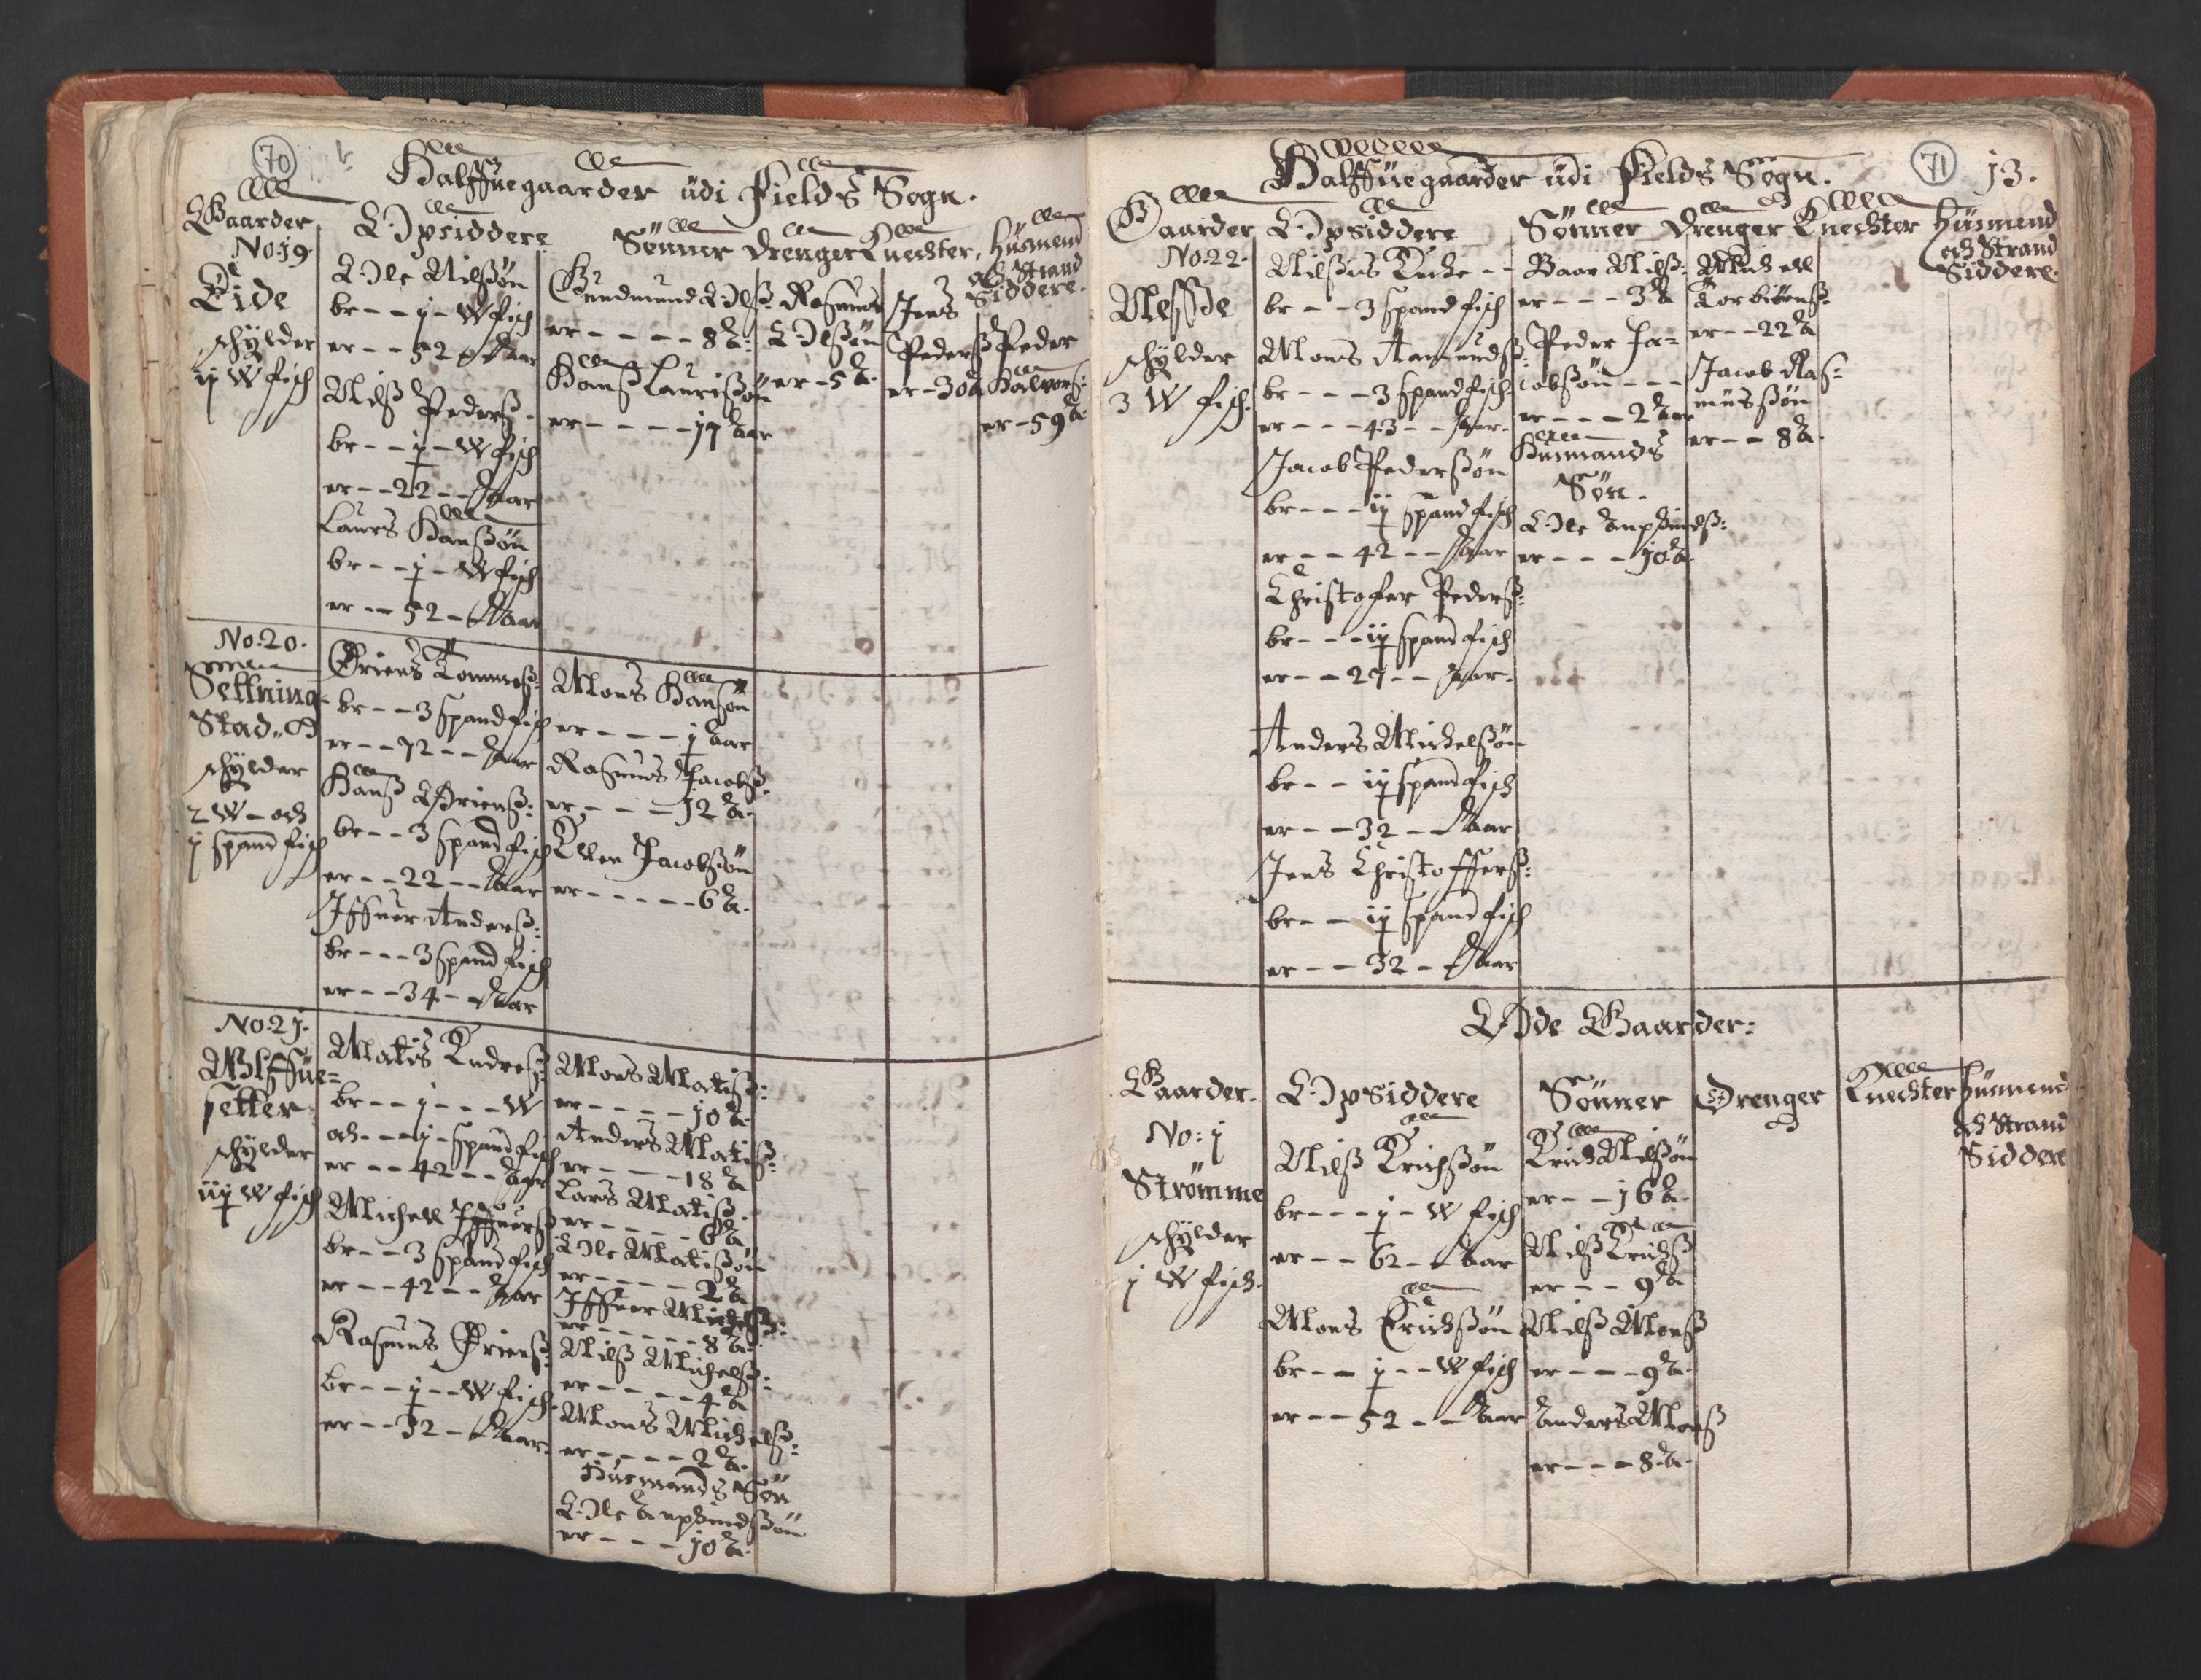 70
Halffuegaarder üdi Fields Sogn.
Gaarder
Opsiddere
Sønner Drenger Knechter, Hüsmend
och Strand
Siddere.
No: 19
Eide
schylder
ij W fisch
Ole Nilssøn
br - - j - W fisch
er - - 52 - Aar
Nilß Pederß:
br - - j - W fisch
er - - 22 - - Aar
Laurs Hanßøn
br - - j - W fisch
er - - 52 - Aar
Gundmund Olß:
er - - - - 8 A:
Hanß Laurißøn
er - - - - 17 Aar
Rasmus
Olßøn
er - 5 A.
Jens
Pederß
er - 30 A
Peder
Halvorß:
er - 59 A.
No: 20.
Settning-
Stad
schylder
2 W - och
j spand fisch
Griens Tommeß:
br - - 3 spand fisch
er - - 72 - - Aar
Hanß Grienß:
br - - 3 spand fisch
er - - 22 - - Aar
Iffuer Anderß:
br - - - 3 spand fisch
er - - 34 - Aar
Mons Hansøn
er - - - - j Aar
Rasmus Jacobß:
er - - - - 12 A.
Ellen Jacobßøn
er - - - - - 6 A.
No: 21.
schylder
iij W fisch
Matis Endreß:
br - - j - - - W
och - - - j - spand fisch
er - - 42 - - Aar
Michell Iffuerß
br - - 3 spand fisch
er - - 42 - - Aar
Rasmus Grienß:
br - - j - - W fisch.
er - - 32 - Aar.
Mons Matiß:
er - - - - - 10 A.
Anders Matiß:
er - - - - 18 A
Lars Matiß.
er - - - - - 6 A
Ole Matißøn
er - - - - - 2 A
Iffuer Michelß:
er - - - - - - 8 A.
Nilß Michelß:
er - - - - - 4 A
Mons Michelß:
er - - - - - 2 A.
Husmands Søn
Ole Anphindßøn
er - - - - 10 A.
71
13.
Halffüegaarder üdi Fields Sogn.
Gaarder
Opsiddere
Sønner Drenger Knechter Hüsmend
och Strand
Siddere.
No: 22.
Nesße
schylder
3 W fisch.
br - - - 3 spand fisch
Mons Aamundß:
br - - - 3 spand fisch.
er - - - 43 - - Aar.
Jacob Pederßøn
br - - - ij spand fisch
er - - 42 - - Aar
Christofer Pederß:
br - - - ij spand fisch
er - - 27 - - Aar.
Anders Michelßøn
br - - ij spand fisch
er - - 32 - Aar
Jens Christofferß:
br - - ij spand fisch
er - - - 32 - Aar
Baar Nilß:
er - - - 3 A
Peder Ja=
cobßøn - - -
er - - - 2 Aar
Husmands
Søn.
Ole Anphindß:
er - - - 10 A.
Michell
Torbiörnß:
er - - 22 A
Jacob Ras=
musßøn
er - - 8 A.
Øde Gaarder:
Gaarder.
Opsiddere
Sønner
Drenger
Knechter
Hüsmend
och Strand
Siddere
No: j
Strømme
schylder
j W fisch.
Nilß Erichßøn
br - - - j - W fisch
er - - 62 - Aar
Mons Erichßøn
br - - j - - W fisch
er - - 52 - - Aar
Erich Nilßøn
er - - 16 A.
Nilß Erichß
er - - 9 A
Nilß Monß
er - - - 9 A.
Anders Monß
er - - - 8 A.